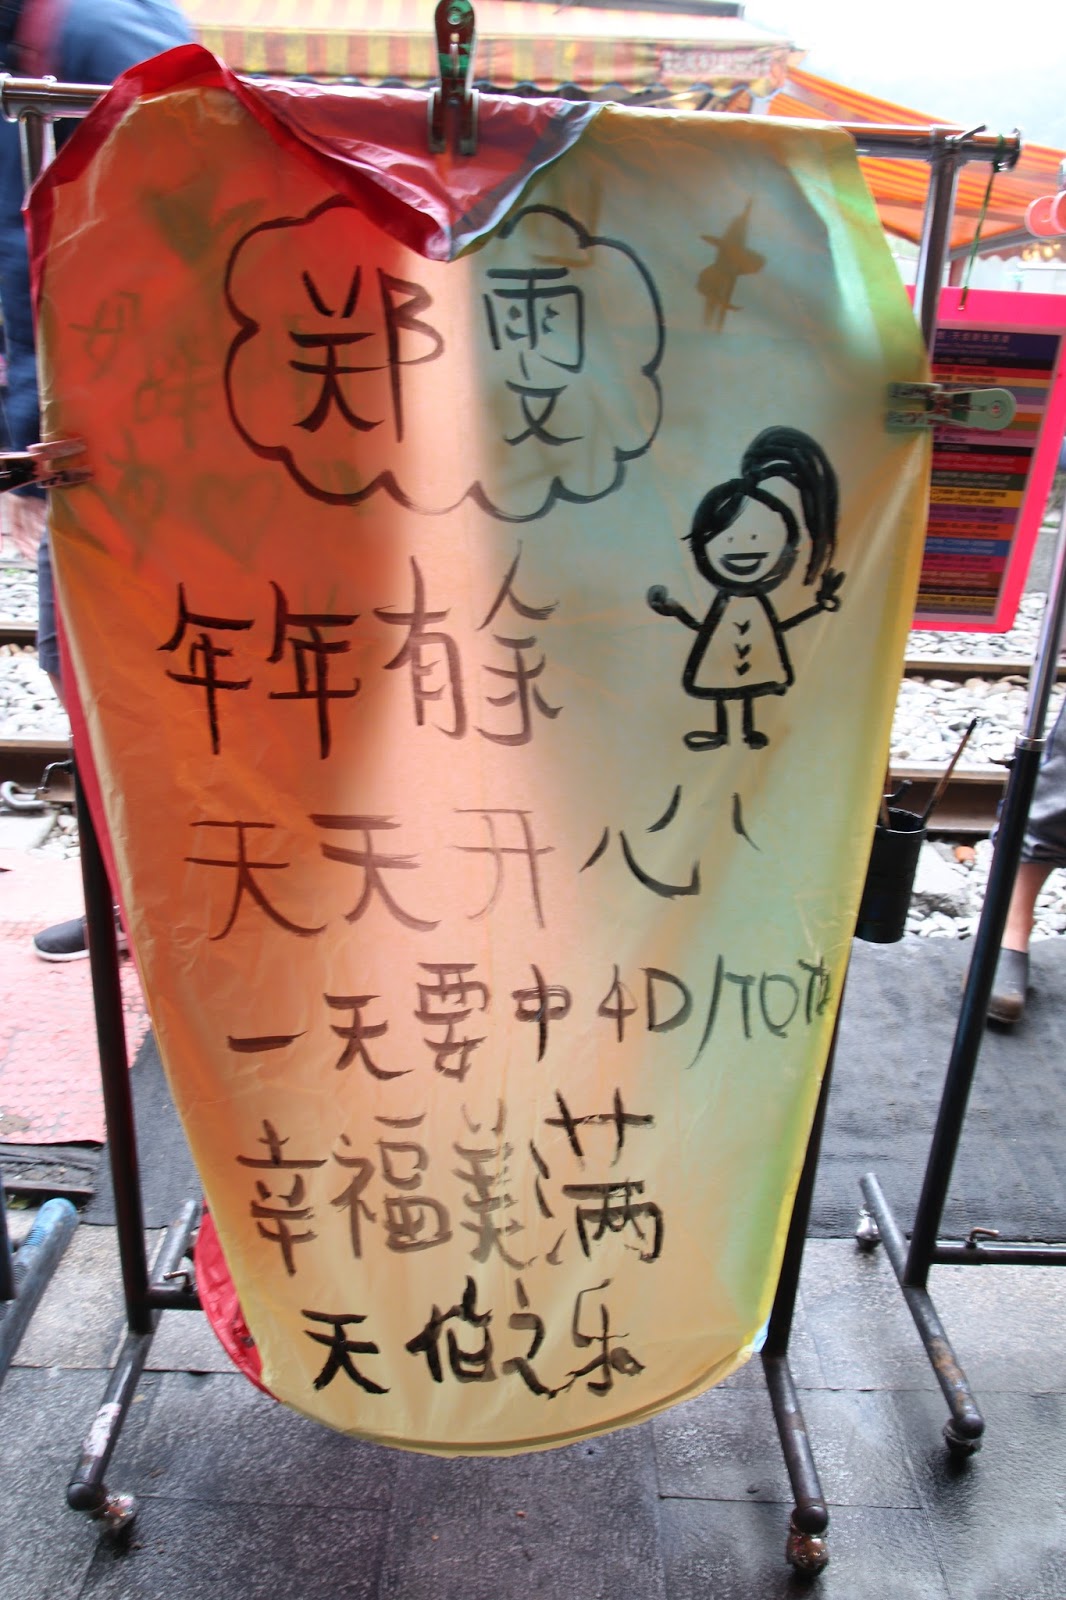 郑雯
年年有余
天天开心
一天要中4D/TOTO
幸福美满
天伦之乐